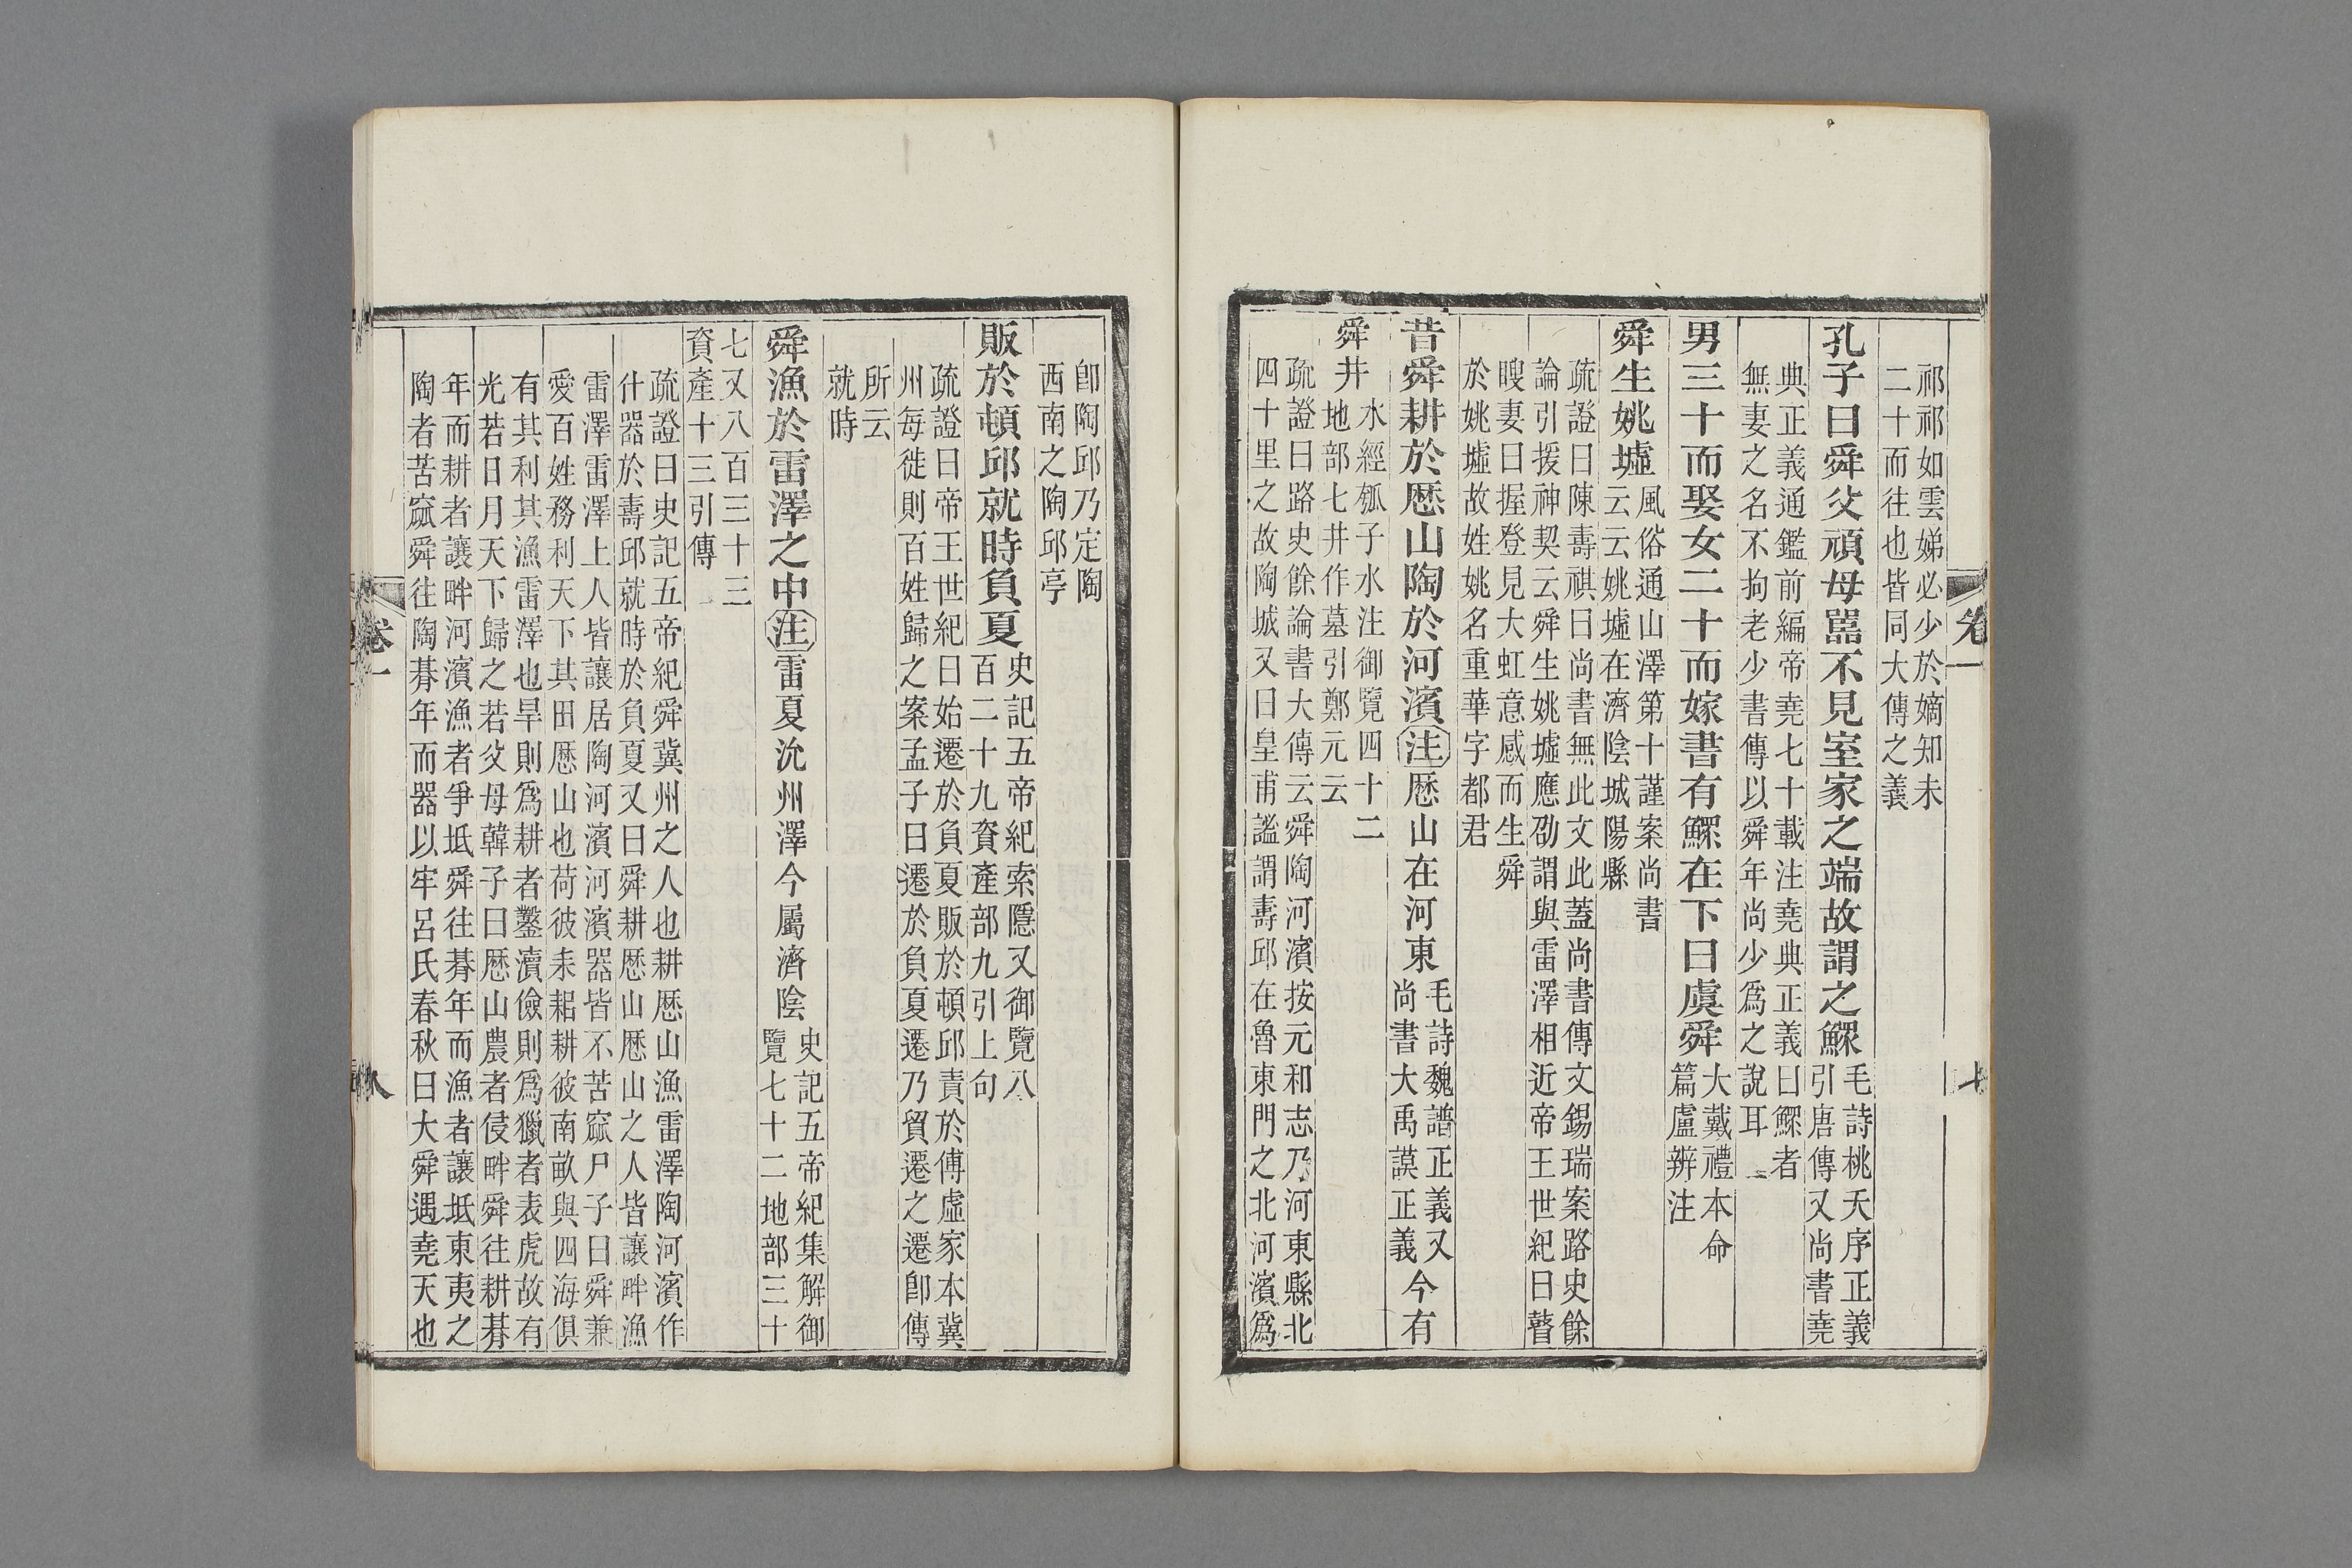 祁祁如雲娣必少於嫡知未
二十而往也皆同大傳之義
孔子曰舜父頑母嚚不見室家之端故謂之鰥
毛詩桃夭序正義
引唐傳又尚書堯
典正義通鑑前編帝堯七十載注堯典正義曰鰥者
無妻之名不拘老少書傳以舜年尚少爲之說耳
男三十而娶女二十而嫁書有鰥在下曰虞舜
大戴禮本命
篇盧辨注
舜生姚墟
風俗通山澤第十謹案尚書
云云姚墟在濟陰城陽縣
疏證曰陳壽祺曰尚書無此文此蓋尚書傳文錫瑞案路史餘
論引援神契云舜生姚墟應劭謂與雷澤相近帝王世紀曰瞽
瞍妻曰握登見大虹意感而生舜
於姚墟故姓姚名重華字都君
昔舜耕於歷山陶於河濱注歷山在河東
毛詩魏譜正義又
尚書大禹謨正義
今有
舜井
水經瓠子水注御覽四十二
地部七井作墓引鄭元云
疏證曰路史餘論書大傳云舜陶河濱按元和志乃河東縣北
四十里之故陶城又曰皇甫謐謂壽邱在魯東門之北河濱爲
卷一
七
卽陶邱乃定陶
西南之陶邱亭
販於頓邱就時負夏
史記五帝紀索隱又御覽八
百二十九資產部九引上句
疏證曰帝王世紀曰始遷於負夏販於頓邱責於傅虛家本冀
州每徙則百姓歸之案孟子曰遷於負夏遷乃貿遷之遷卽傳
所云
就時
舜漁於雷澤之中注雷夏沇州澤今屬濟陰
史記五帝紀集解御
覽七十二地部三十
七又八百三十三
資產十三引傳
疏證曰史記五帝紀舜冀州之人也耕歷山漁雷澤陶河濱作
什器於壽邱就時於負夏又曰舜耕歷山歷山之人皆讓畔漁
雷澤雷澤上人皆讓居陶河濱河濱器皆不苦窳尸子曰舜兼
愛百姓務利天下其田歷山也荷彼耒耜耕彼南畝與四海俱
有其利其漁雷澤也旱則爲耕者鑿瀆儉則爲獵者表虎故有
光若日月天下歸之若父母韓子曰歷山農者侵畔舜往耕朞
年而耕者讓畔河濱漁者爭坻舜往朞年而漁者讓坻東夷之
陶者苦窳舜往陶朞年而器以牢呂氏春秋曰大舜遇堯天也
卷一
八